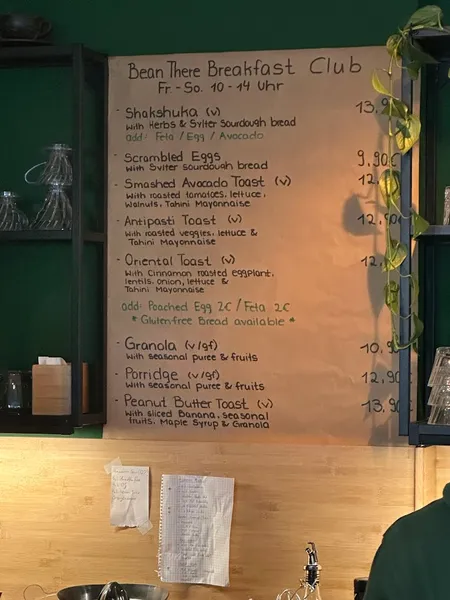 Bean There Breakfast Club
Fr.-So. 10-14 Uhr
- Shakshuka (v)
with Herbs & Sylter Sourdough bread
add: Feta / Egg / Avocado
- Scrambled Eggs 9,90€
with Sylter sourdough bread
- Smashed Avocado Toast (v)
with roasted tomatoes, lettuce,
walnuts, Tahini Mayonnaise
- Antipasti Toast (v)
with roasted veggies, lettuce &
Tahini Mayonnaise
- Oriental Toast (v)
with Cinnamon roasted eggplant,
lentils, onion, lettuce &
Tahini Mayonnaise
add: Poached Egg 2€ / Feta 2€
* Glutenfree Bread available *
- Granola (v/gf)
with seasonal puree & fruits
- Porridge (v/gf) 12,90
with seasonal puree & fruits
- Peanut Butter Toast (v) 13,90
with sliced Banana, seasonal
fruits, Maple Syrup & Granola